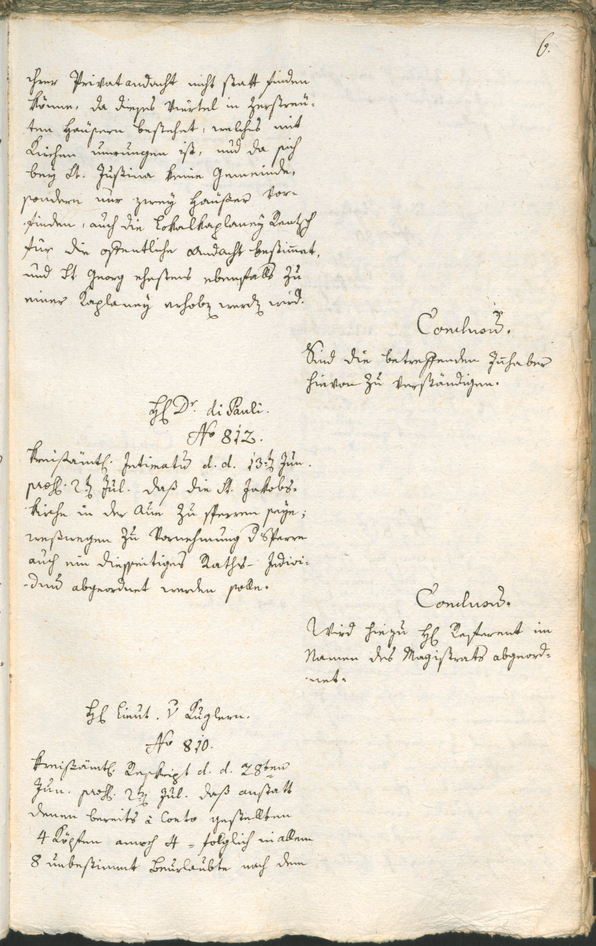 6.
ihrer Privatandacht nicht statt finden
könne, da dieses Viertel in zerstreu-
ten Häusern bestehet, welches mit
Kirchen umrungen ist, und da sich
bey St. Justina keine Gemeinde,
sondern nur zwey Häuser vor-
finden, auch die Lokalkaplaney Rentsch
für die offentliche Andacht bestimmt,
und St Georg ehestens ebenfalls zu
einer Kaplaney erhobẽ werdẽ wird.
Conclusum.
Sind die betreffenden Inhaber
hievon zu verständigen.
H Dr. di Pauli.
No 812.
Kreisämtl. Intimatum d. d. 13t Jun.
praes. 2t Jul. daß die St. Jakobs-
kirche in der Aue zu sperren seye;
weßwegen zu Vornehmung d Sperre
auch ein diesseitiges Raths-Indivi-
duum abgeordnet werden solle.
Conclusum.
Wird hiezu H Referent im
Namen des Magistrats abgeord-
net.
H Lieut. v Kuglern.
No 810.
Kreisämtl. Reskript d. d. 28ten
Jun. praes. 2t Jul. daß anstatt
denen bereits à Conto gestellten
4 Köpfen annoch 4 = folglich in allem
8 unbestimmt Beurlaubte nach dem